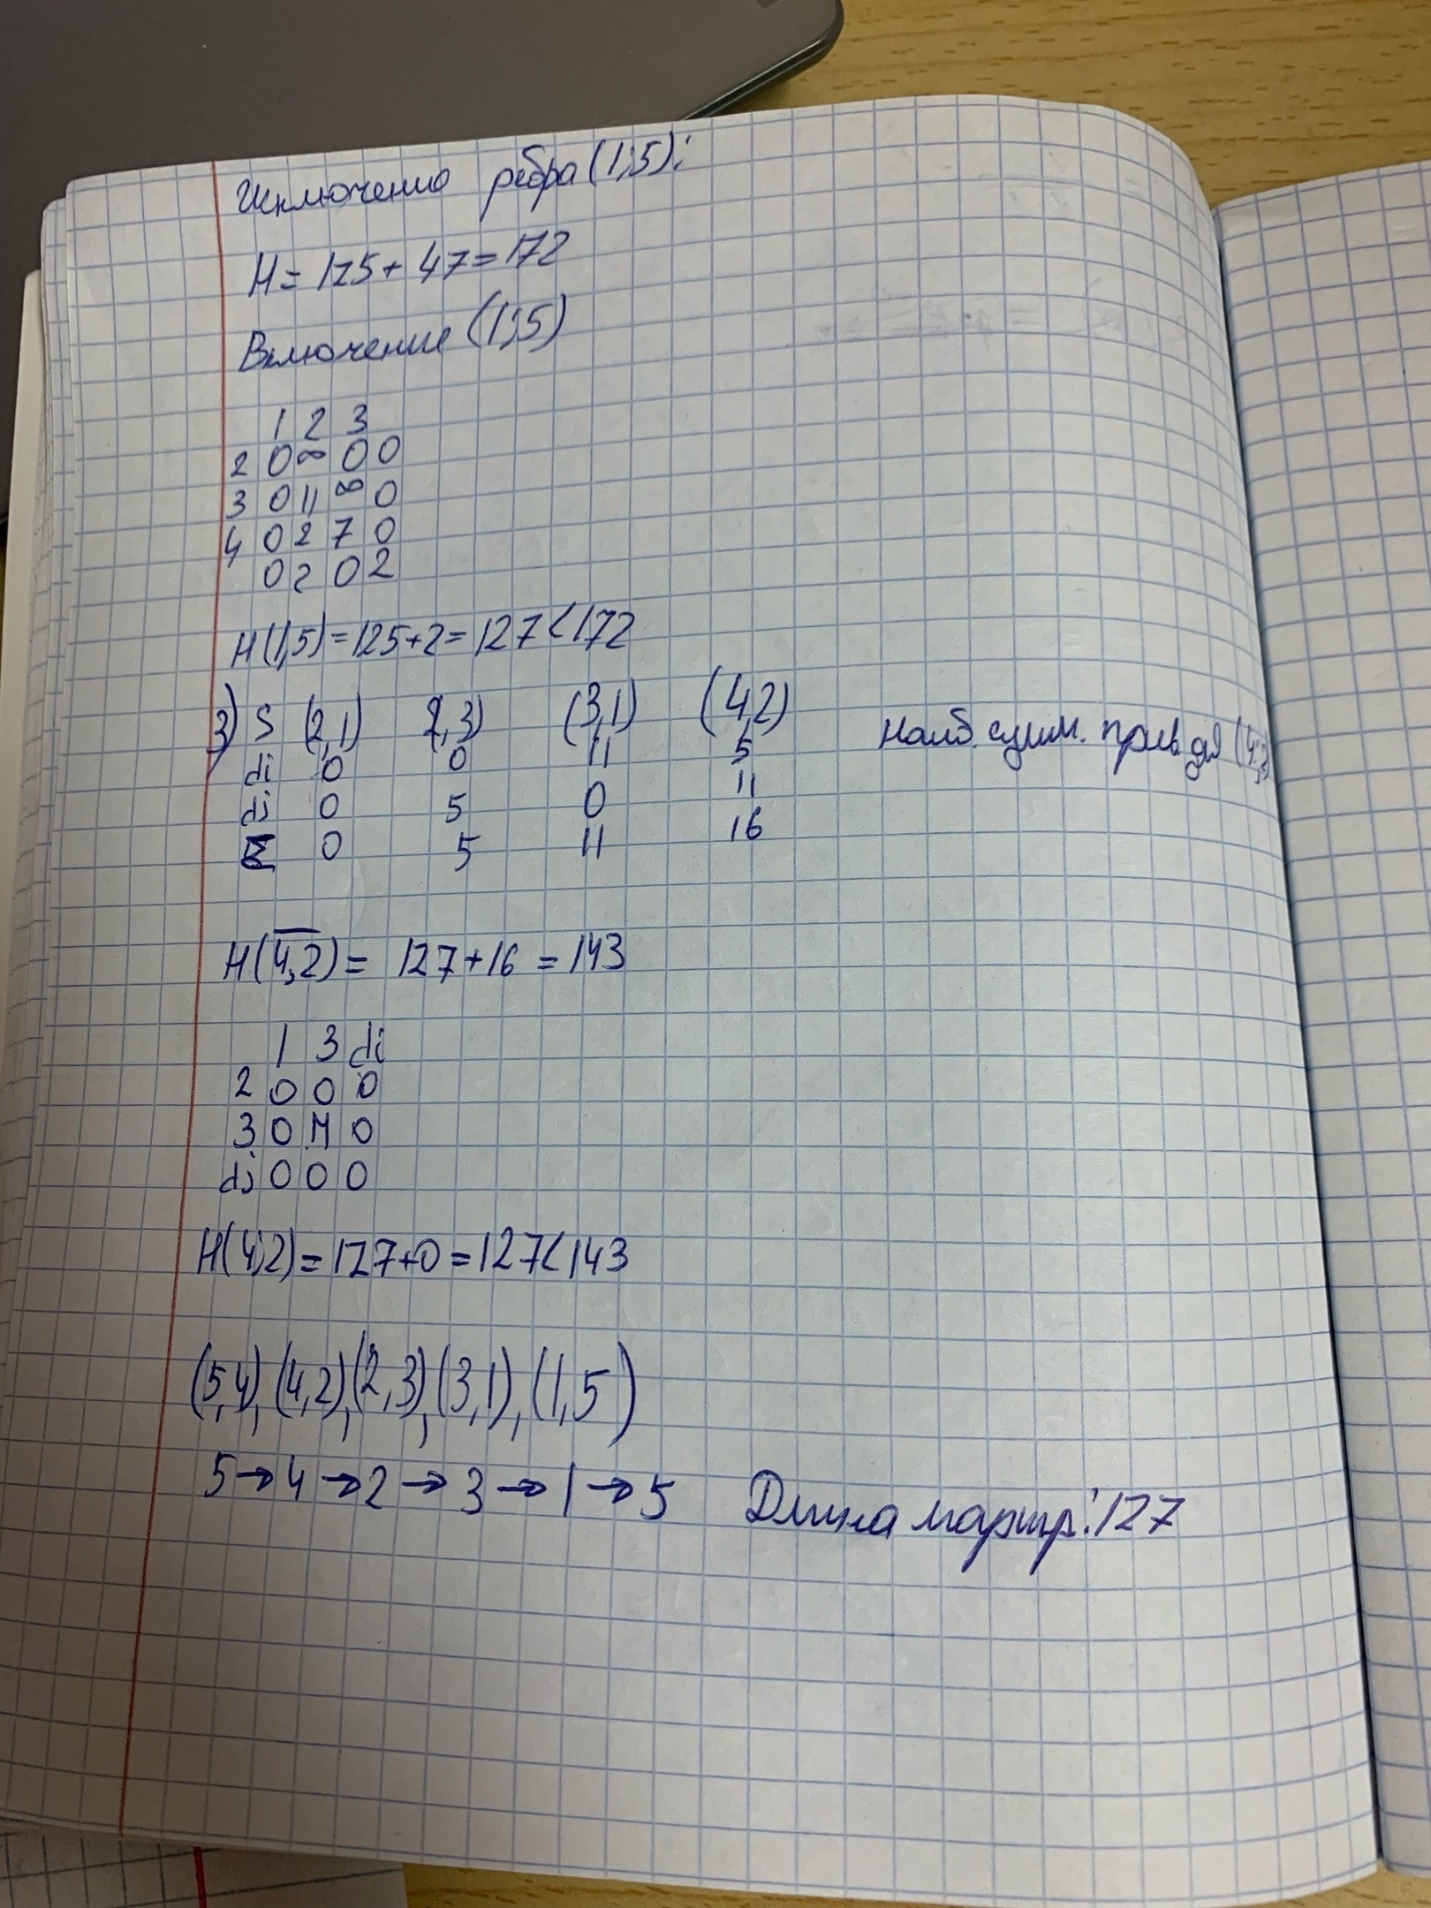 Исключение ребра (1;5):
H = 125 + 47 = 172
Включение (1;5)
1 2 3
2 0 ∞ 0 0
3 0 11 ∞ 0
4 0 2 7 0
0 2 0 2
H(1,5) = 125+2 = 127 < 172
3) S (2,1) (2,3) (3,1) (4,2) Наиб. сумм. прив для (4;2)
di 0 0 11 5
dj 0 5 0 11
Σ 0 5 11 16
H(4,2) = 127+16 = 143
1 3 di
2 0 0 0
3 0 M 0
dj 0 0 0
H(4;2) = 127+0 = 127 < 143
(5,4), (4,2), (2,3), (3,1), (1,5)
5 → 4 → 2 → 3 → 1 → 5 Длина маршр: 127